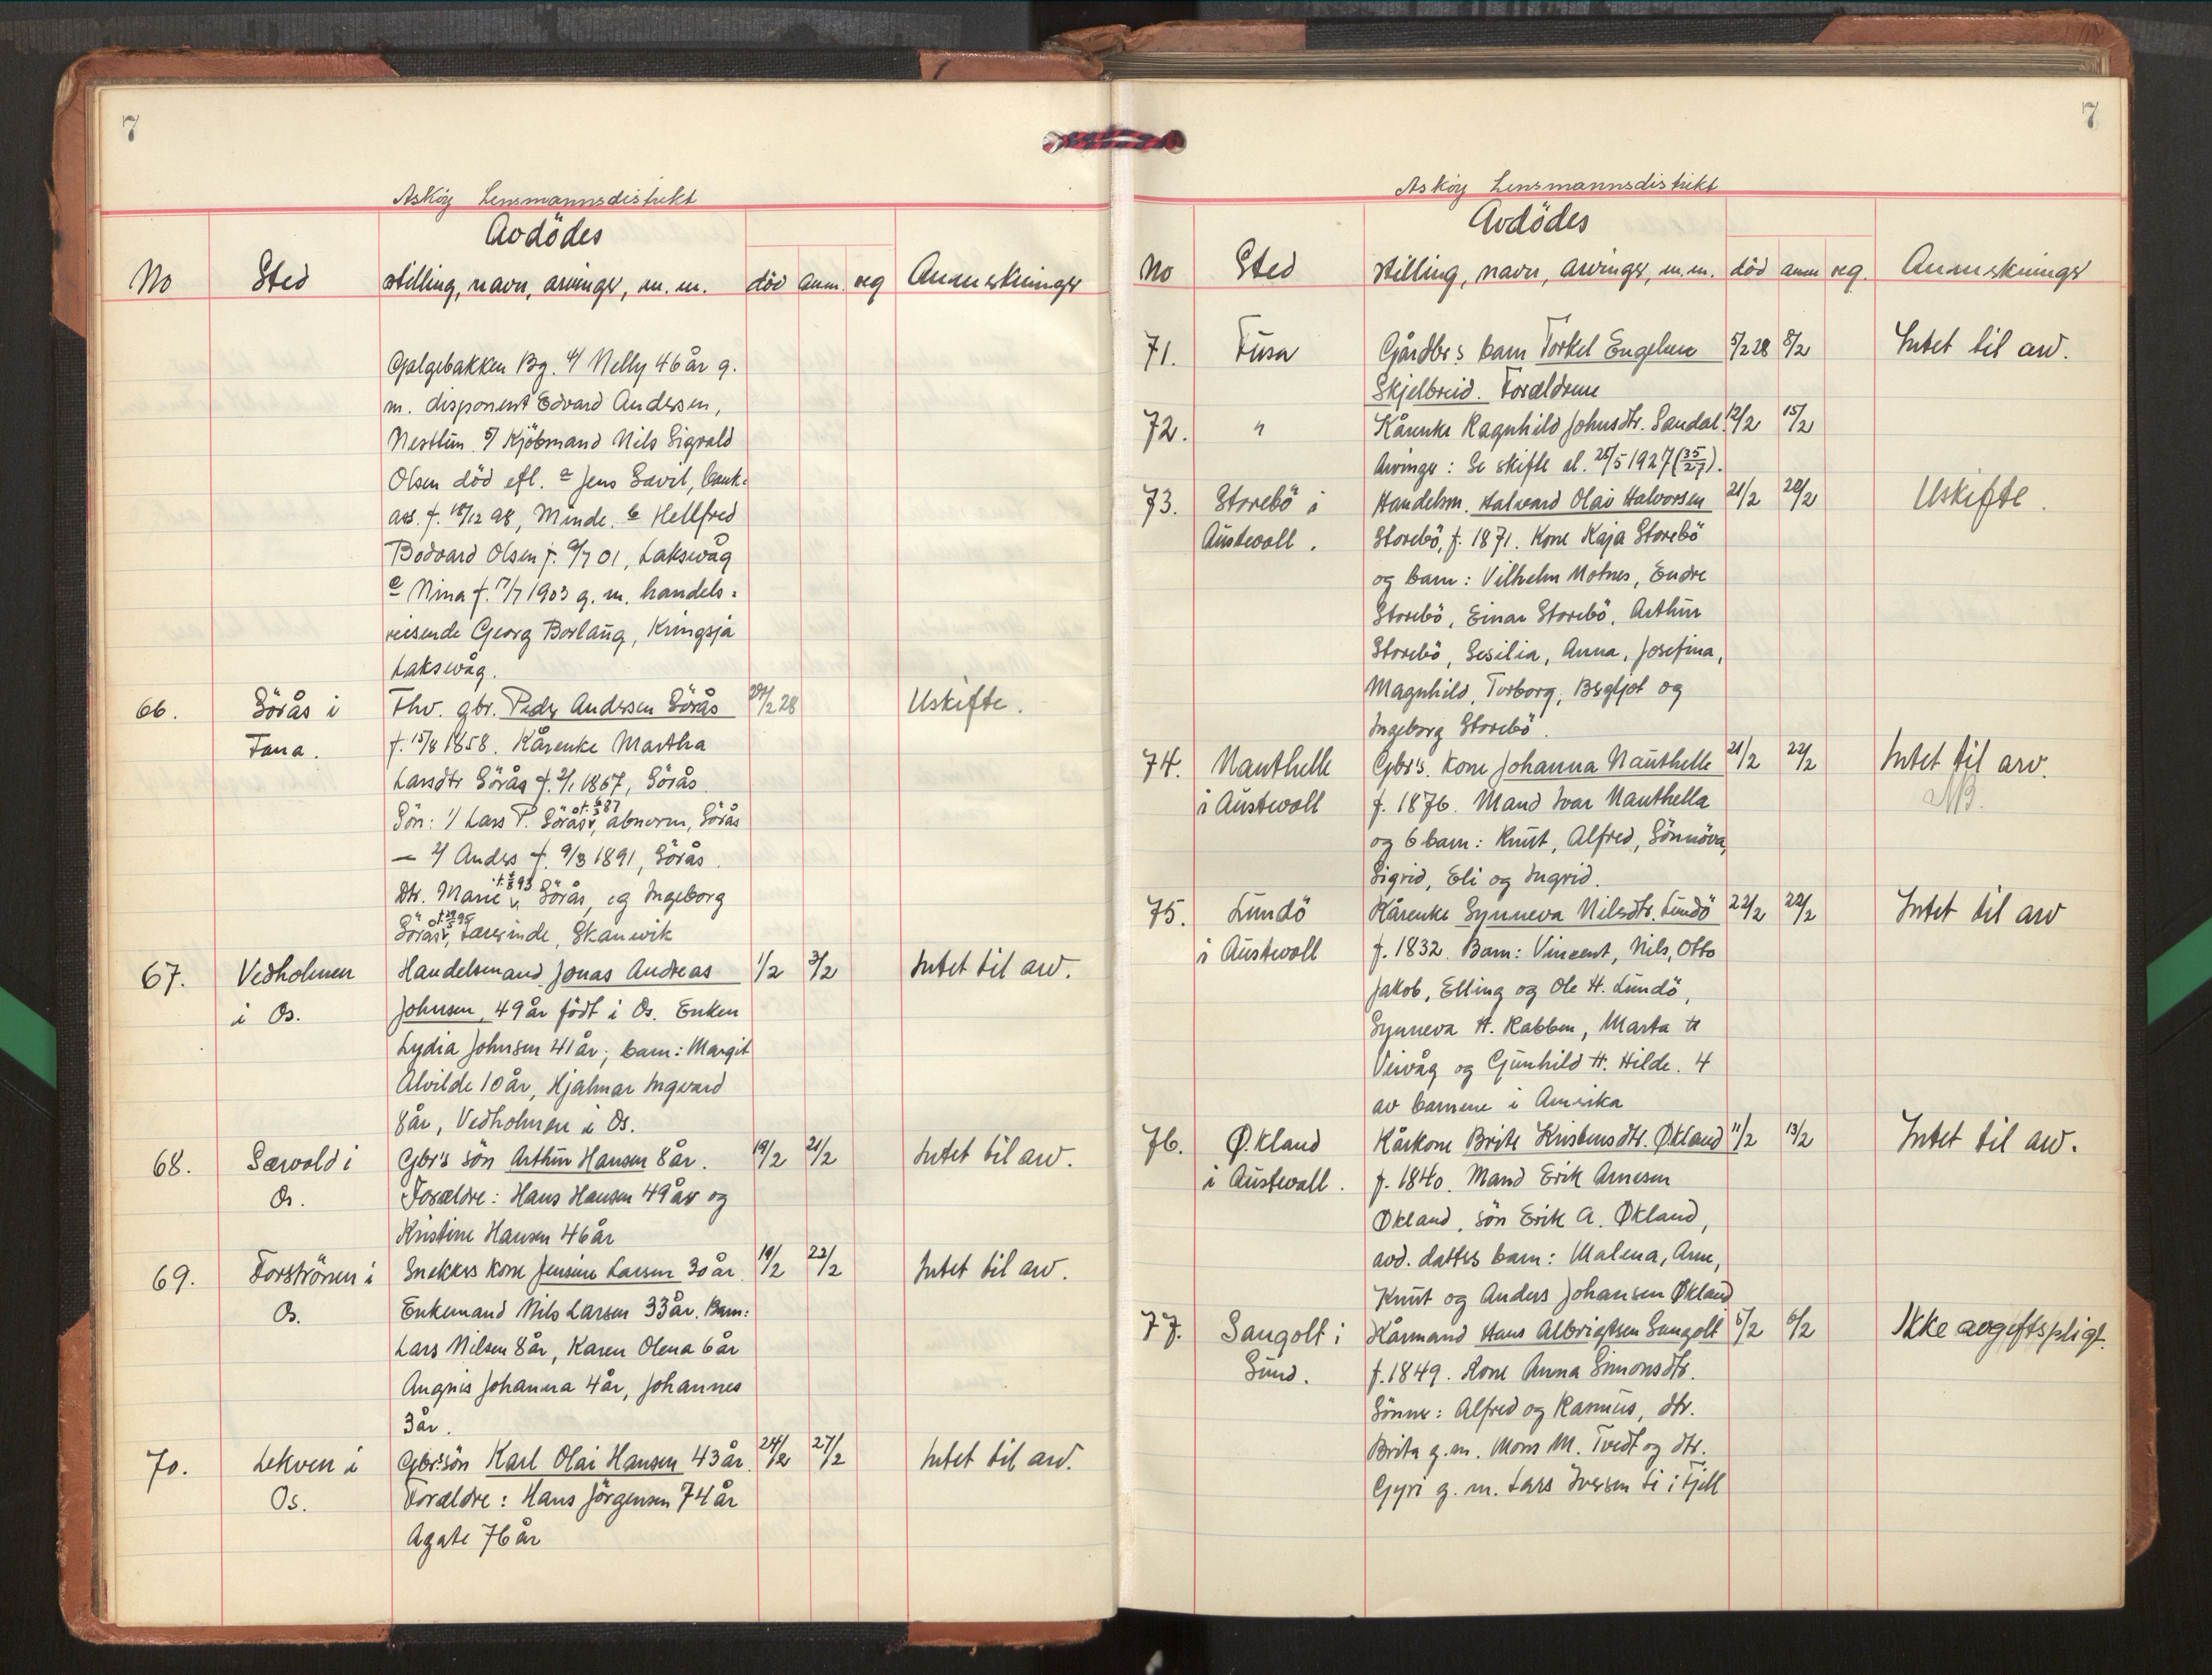 7
Askøy Lensmannsdistrikt
Avdödes
No Sted stilling, navn, arvinger, m. m. död anm. reg Anmerkninger
Galgebakken Bg. 4/ Nelly 46 år g.
m. disponent Edvard Andersen,
Nesttun. 5/ Kjöbmand Nils Sigvald
Olsen död efl. a Jens Savil, bank-
ass. f. 18/12 98, Minde. b Hellfred
Bodvard Olsen f. 9/7 01, Laksevåg
c Nina f. 17/7 1903 g. m. handels=
reisende Georg Borlaug, Kringsjå
Laksevåg.
66. Sörås i Fhv. gbr. Peder Andersen Sörås 29/2 28 Uskifte.
Fana. f. 15/8 1858. Kårenke Martha
Larsdtr Sörås f. 2/1 1867, Sörås.
Sön: 1/ Lars P. Sörås, abnorm, Sörås
— 2/ Anders f. 9/3 1891, Sörås.
Dtr. Marie Sörås, og Ingeborg
Sörås, Lærerinde, Skånevik
67. Vedholmen Handelsmand Jonas Andreas 1/2 3/2 Intet til arv.
i Os. Johnsen, 49 år födt i Os. Enken
Lydia Johnsen 41 år; barn: Margit
Alvilde 10 år, Hjalmar Ingvard
8 år, Vedholmen i Os.
68. Særvold i Gbr's sön Arthur Hansen 8 år. 19/2 21/2 Intet til arv.
Os. Forældre: Hans Hansen 49 år og
Kristine Hansen 46 år
69. Forströnen i Snekkers kone Jensine Larsen 30 år. 19/2 22/2 Intet til arv.
Os. Enkemand Nils Larsen 33 år. Barn:
Lars Nilsen 8 år, Karen Olena 6 år
Angnis Johanna 4 år, Johannes
3 år.
70. Lekven i Gbr's sön Karl Olai Hansen 43 år. 24/2 27/2 Intet til arv.
Os. Forældre: Hans Jörgensen 74 år
Agate 76 år
7
Askøy Lensmannsdistrikt
Avdödes
No Sted stilling, navn, arvinger, m. m. död anm reg. Anmerkninger
71. Fusa Gårdbr.s barn Torkel Engelsen 5/2 28 8/2 Intet til arv.
Skjelbreid. Forældrene
72. " Kårenke Ragnhild Johnsdtr. Sandal. 12/2 15/2
Arvinger: Se skifte al. 25/5 1927 (35/27).
73. Storebö i Handelsm. Halvard Olai Halvorsen 21/2 20/2 Uskifte.
Austevoll. Storebö, f. 1871. Kone Kaja Storebö
og barn: Vilhelm Motnes, Endre
Storebö, Einar Storebö, Arthur
Storebö, Sesilia, Anna, Josefina,
Magnhild, Torborg, Bergljot og
Ingeborg Storebö.
74. Nauthelle Gbr's. kone Johanna Nauthelle 21/2 22/2 Intet til arv.
i Austevoll f. 1876. Mand Ivar Nauthella NB.
og 6 barn: Knut, Alfred, Sönnöva,
Sigrid, Eli og Ingrid.
75. Lundö Kårenke Synneva Nilsdtr. Lundö 22/2 22/2 Intet til arv
i Austevoll f. 1832. Barn: Vincent, Nils, Otto
Jakob, Elling og Ole H. Lundö,
Synneva H. Rabben, Marta H
Veivåg og Gunhild H. Hilde. 4
av barnene i Amerika
76. Økland Kårkone Brite Kristensdtr. Økland 11/2 13/2 Intet til arv.
i Austevoll. f. 1840. Mand Erik Arnesen
Økland, sön Erik A. Økland,
avd. datters barn: Malena, Arne,
Knut og Anders Johansen Økland
77. Sangolt i Kårmand Hans Albrigtsen Sangolt 5/2 6/2 Ikke avgiftspligt.
Sund. f. 1849. Kone Anna Simonsdtr.
Sönner: Alfred og Rasmus, dtr.
Brita g. m. Mons M. Tvedt og dtr.
Gyri g. m. Lars Iversen Li i Fjell